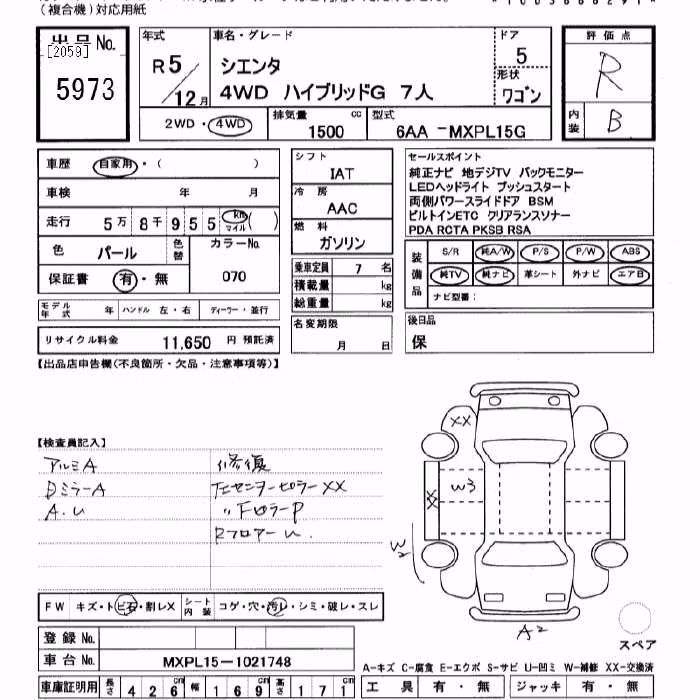 (複合機)対応用紙
出品No.
[2059]
5973
年式
R5/12月
車名・グレード
シエンタ
4WD ハイブリッドG 7人
ドア
5
形状
ワゴン
評価点
R
内装
B
2WD・4WD
排気量
1500 cc
型式
6AA -MXPL15G
車歴 自家用・( )
車検 年 月
走行 5万8千955 km マイル ( )
色 パール
色替
カラーNo.
070
保証書 有・無
シフト
IAT
冷房
AAC
燃料
ガソリン
乗車定員 7 名
積載量 kg
総重量 kg
セールスポイント
純正ナビ 地デジTV バックモニター
LEDヘッドライト プッシュスタート
両側パワースライドドア BSM
ビルトインETC クリアランスソナー
PDA RCTA PKSB RSA
装備品
S/R 純A/W P/S P/W ABS
純TV 純ナビ 革シート 外ナビ エアB
ナビ型番:
モデル年式 年 ハンドル 左・右 ディーラー・並行
リサイクル料金 11,650 円 預託済
名変期限
月 日
後日品
保
【出品店申告欄(不良箇所・欠品・注意事項等)】
【検査員記入】
アルミA
DミラーA
A.U
修復
左センターピラーXX
〃FピラーP
RフロアーU.
XX
XX
W3
W2
A2
スペア
FW キズ・トビ石・割レX
シート内装 コゲ・穴・汚レ・シミ・破レ・スレ
登録No.
車台No. MXPL15-1021748
A-キズ C-腐食 E-エクボ S-サビ U-凹ミ W-補修 XX-交換済
車庫証明用 長さ 426cm 幅 169cm 高さ 171cm
工具 有・無 ジャッキ 有・無